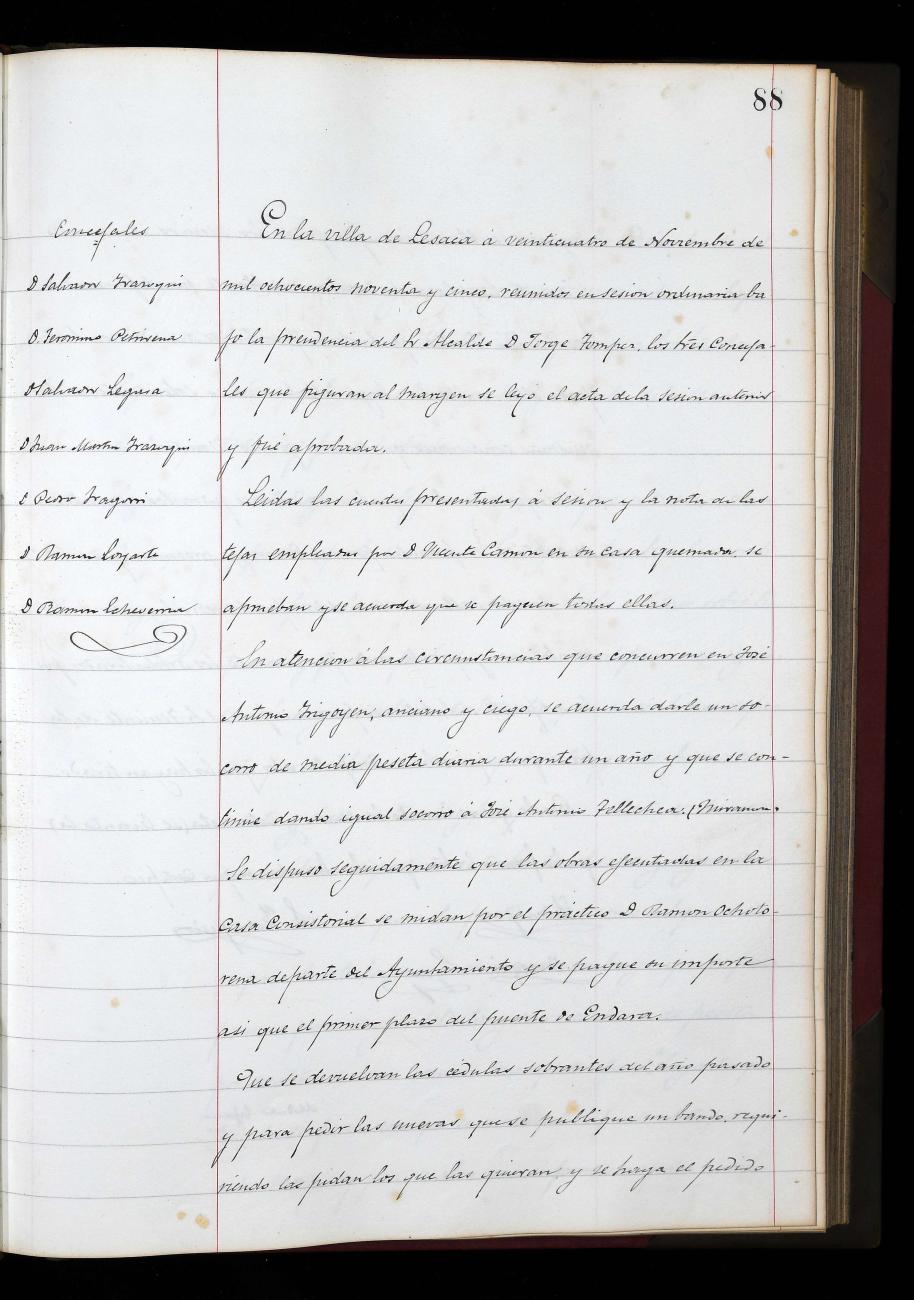 88
Concejales
D Salvador Irazoqui
D. Jeronimo Petrirena
D Salvador Leguia
D Juan Martin Irazoqui
D Pedro Iragorri
D Ramon Loyarte
D Ramon Echeverria
En la villa de Lesaca á veinticuatro de Noviembre de
mil ochocientos noventa y cinco, reunidos en sesion ordinaria ba
jo la presidencia del Sr Alcalde D Jorge Tomper, los tres Conceja-
les que figuran al margen se leyó el acta de la sesion anterior
y fué aprobada.
Leidas las cuentas presentadas á sesion y la nota de las
tejas empleadas por D Vicente Camon en su casa quemada, se
aprueban y se acuerda que se paguen todas ellas.
En atencion á las circunstancias que concurren en José
Antonio Irigoyen, anciano y ciego, se acuerda darle un so-
corro de media peseta diaria durante un año y que se con-
tinúe dando igual socorro á José Antonio Tellechea.
Se dispuso seguidamente que las obras ejecutadas en la
Casa Consistorial se midan por el práctico D Ramon Ochoto-
rena de parte del Ayuntamiento y se pague su importe
asi que el primer plazo del puente de Endara.
Que se devuelvan las cédulas sobrantes del año pasado
y para pedir las nuevas que se publique un bando, requi-
riendo las pidan los que las quieran y se haga el pedido